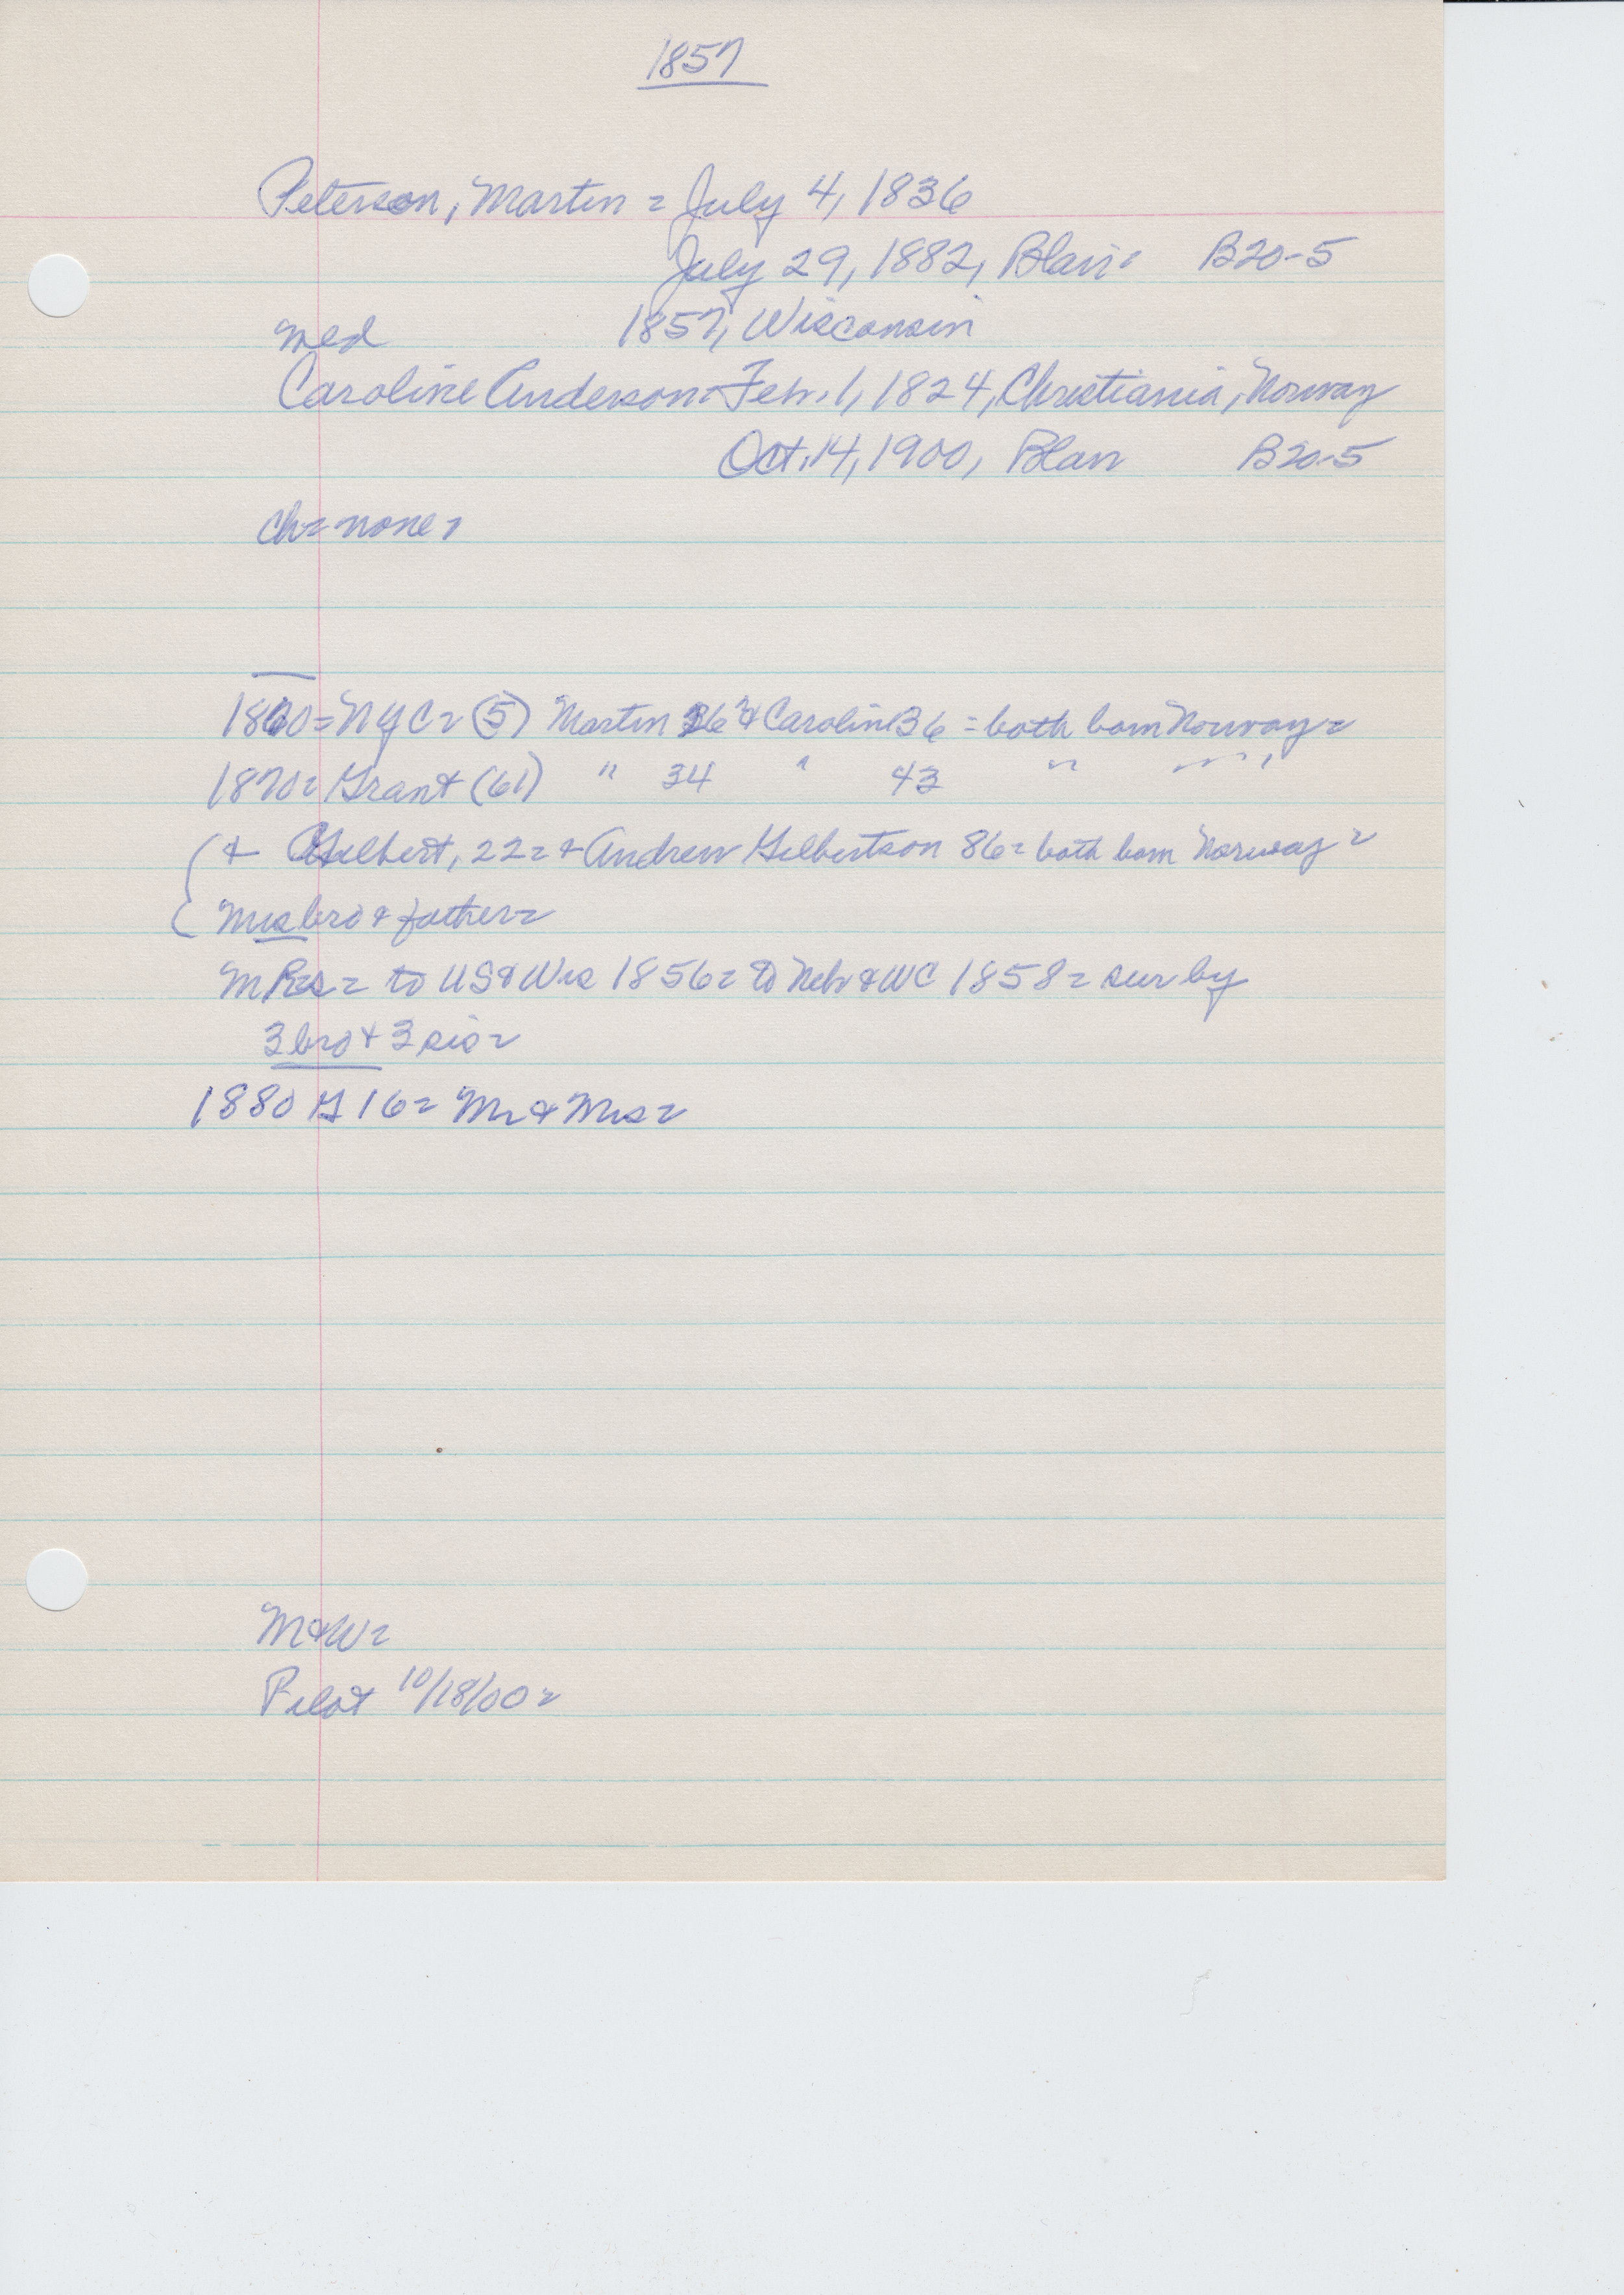 1857
Peterson, Martin = July 4, 1836
July 29, 1882, Blair = B20-5
med 1857, Wisconsin
Caroline Anderson = Feb. 1, 1824, Christiania, Norway
Oct. 14, 1900, Blair B20-5
ch = none =
1860 = NYC = (5) Martin & Caroline 36 = both born Norway =
1870 = Grant (61) " 34 " 43 " "
( & Gilbert, 22 = & Andrew Gilbertson 86 = both born Norway =
( Mrs bro & father =
MRs = to US & Wis 1856 = to Neb & WC 1858 = sur by
3 bro & 3 sis =
1880 G 16 = Mr & Mrs =
M&W =
Pilot 10/18/00 =